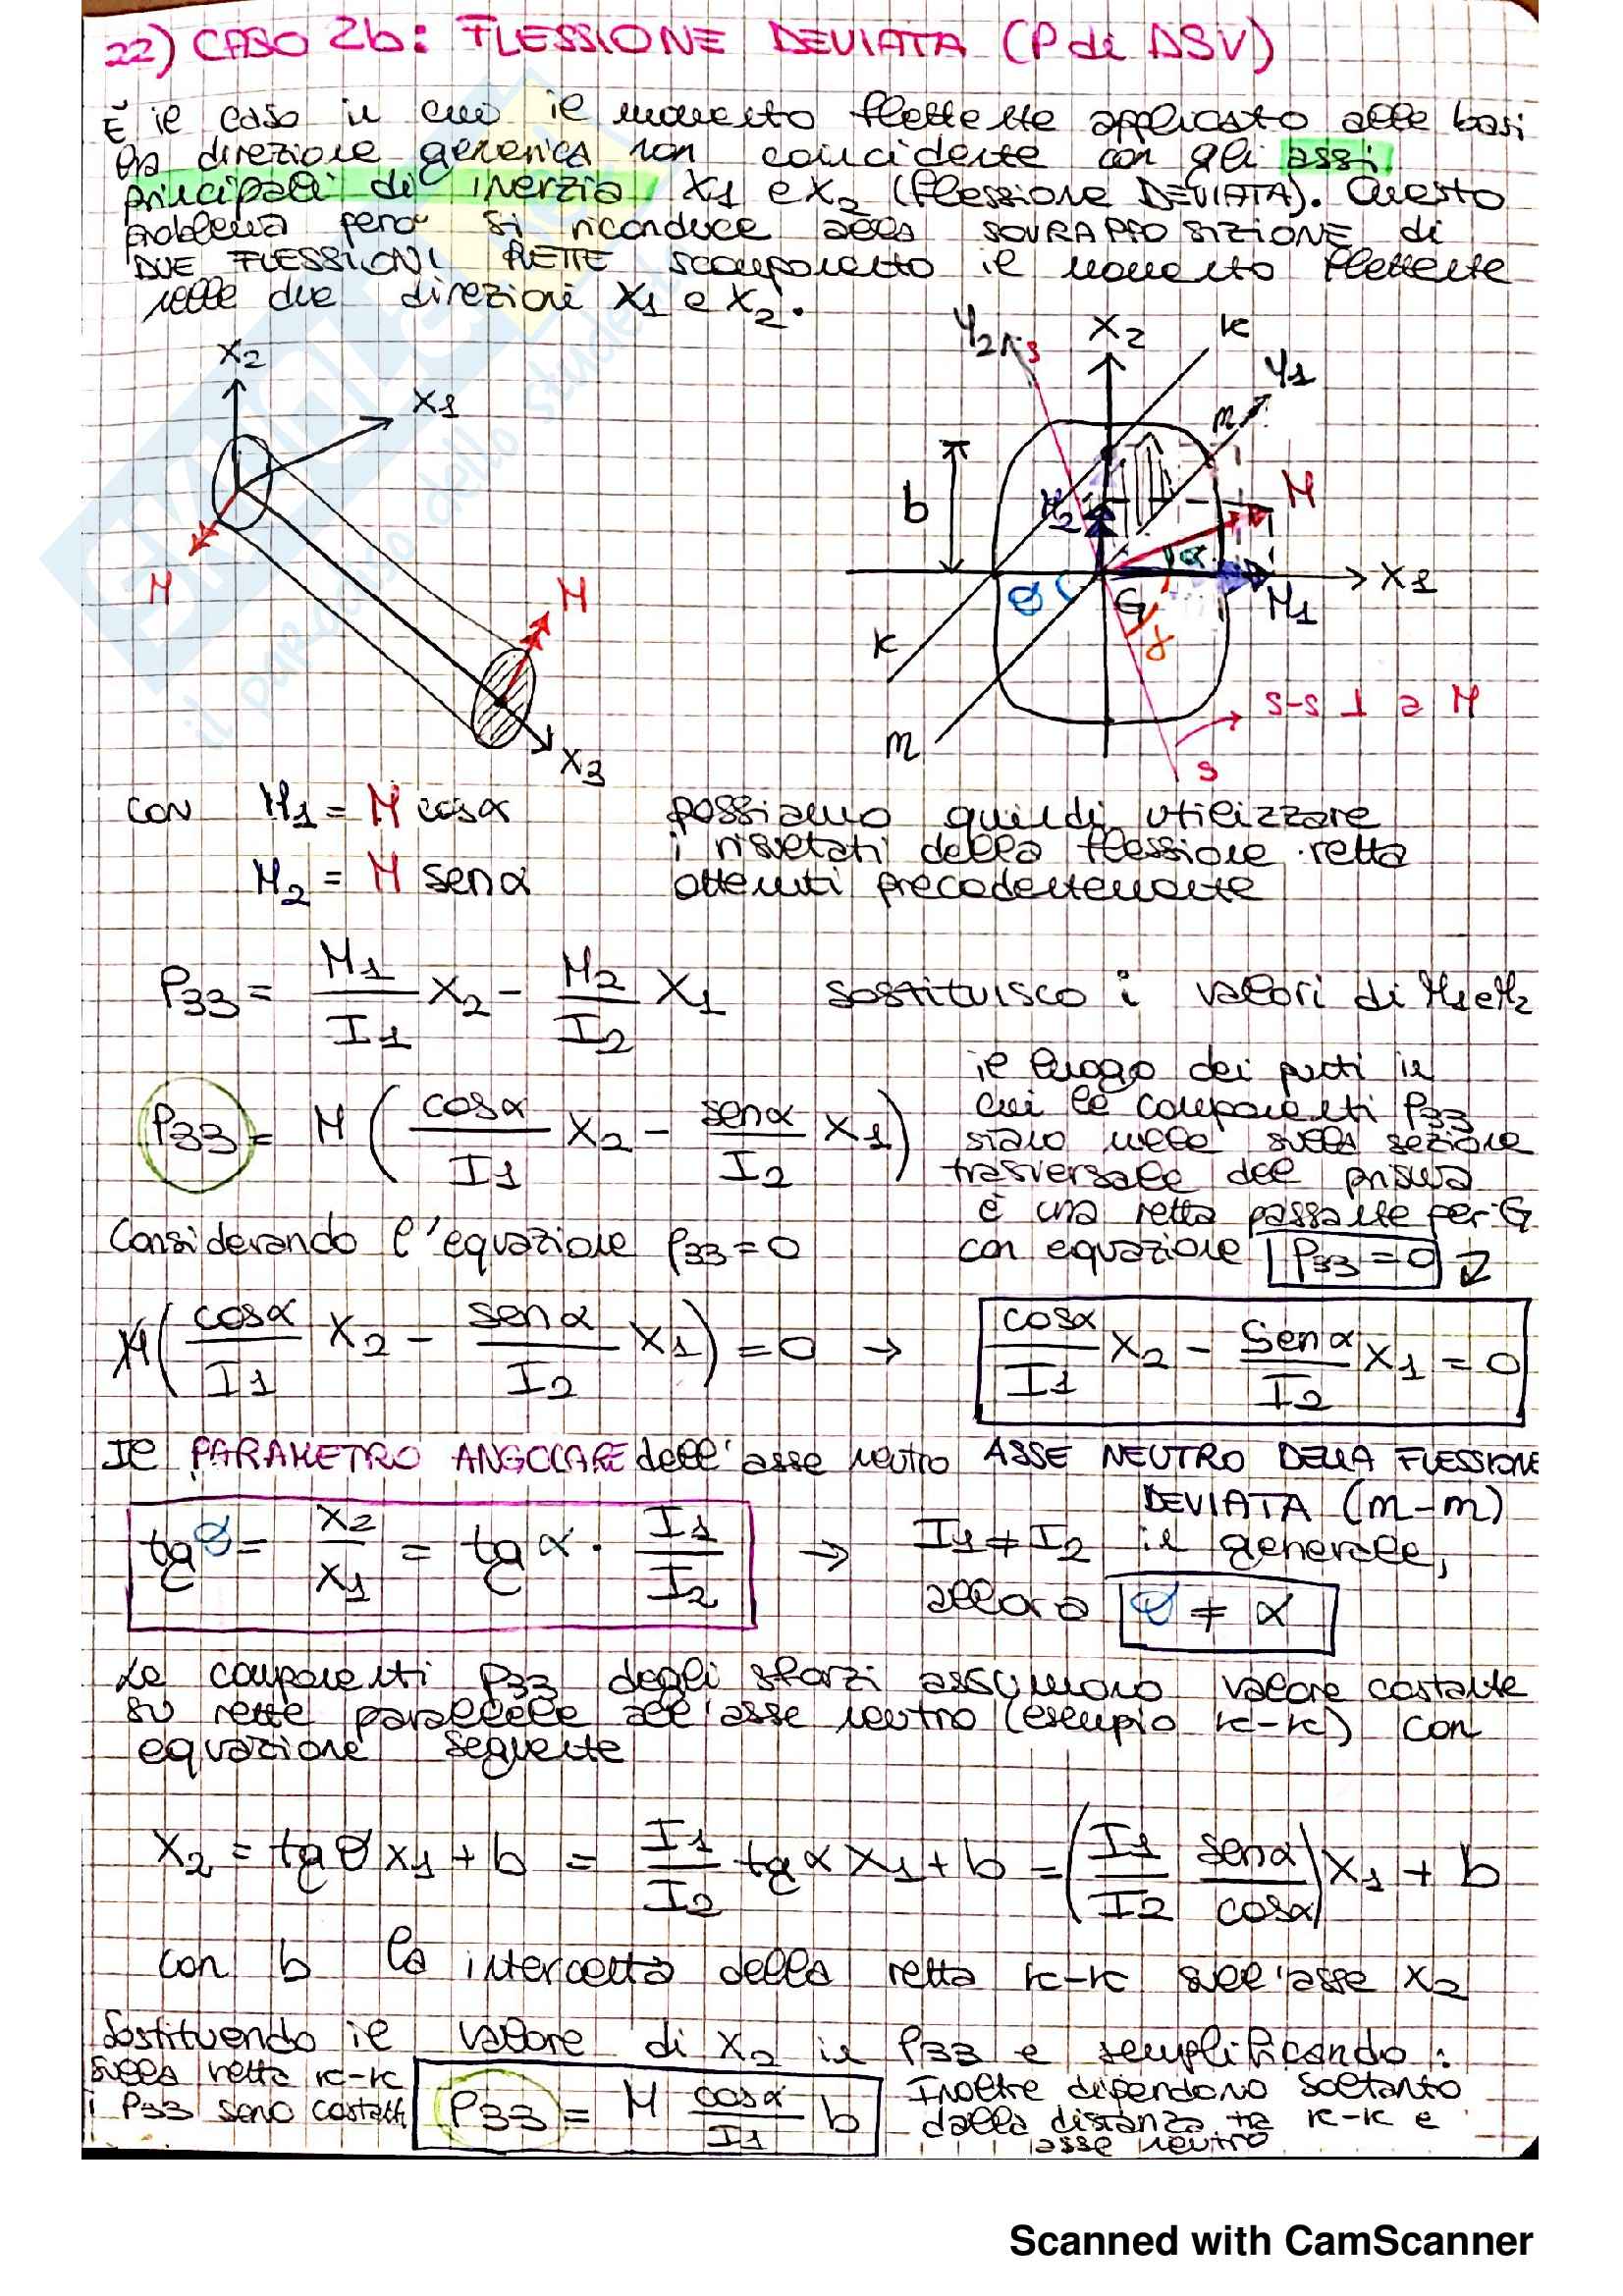 22) CASO 2b: FLESSIONE DEVIATA (P di DSV)
È il caso in cui il momento flettente applicato alle basi
ha direzione generica non coincidente con gli assi
principali di inerzia X1 e X2 (flessione DEVIATA). Questo
problema però si riconduce alla SOVRAPPOSIZIONE di
DUE FLESSIONI RETTE scomponento il momento flettente
nelle due direzioni X1 e X2.
X2
X1
M
M
X3
Y2
s
X2
k
Y1
n
b
M2
M
α
X1
θ
G
M1
γ
k
n
s-s ⊥ a M
s
con M1 = M cosα
M2 = M senα
possiamo quindi utilizzare
i risultati della flessione retta
ottenuti precedentemente
P33 = M1/I1 X2 - M2/I2 X1 sostituisco i valori di M1 e M2
P33 = M (cosα/I1 X2 - senα/I2 X1)
il luogo dei punti in
cui le componenti P33
siano nulle sulla sezione
trasversale del prisma
è una retta passante per G
con equazione P33 = 0
Considerando l'equazione P33 = 0
M(cosα/I1 X2 - senα/I2 X1) = 0 → cosα/I1 X2 - Senα/I2 X1 = 0
Il PARAMETRO ANGOLARE dell'asse neutro
ASSE NEUTRO DELLA FLESSIONE
DEVIATA (n-n)
tgθ = X2/X1 = tgα · I1/I2 → I1 ≠ I2 in generale,
allora θ ≠ α
Le componenti P33 degli sforzi assumono valore costante
su rette parallele all'asse neutro (esempio k-k) con
equazione seguente
X2 = tgθ X1 + b = I1/I2 tgα X1 + b = (I1/I2 senα/cosα) X1 + b
con b la intercetta della retta k-k sull'asse X2
Sostituendo il valore di X2 in P33 e semplificando:
sulla retta k-k
i P33 sono costanti
P33 = M cosα/I1 b
Inoltre dipendono soltanto
dalla distanza tra k-k e
asse neutro
Scanned with CamScanner